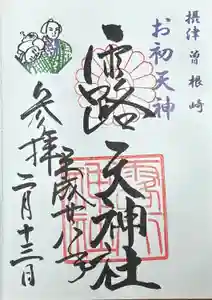 摂津 曽根崎
お初天神
露天神社
平成廿八年
参拝
二月十三日